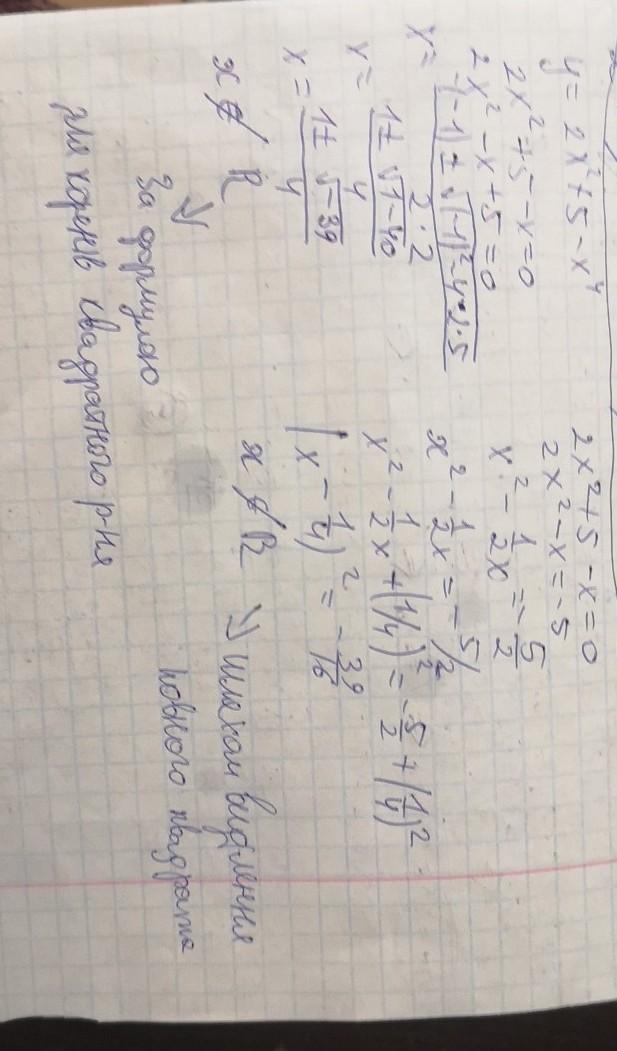 y = 2x² + 5 - x⁴
2x² + 5 - x = 0
2x² - x + 5 = 0
x = -(-1) ± √(-1)² - 4·2·5 / 2·2
x = 1 ± √1-40 / 4
x = 1 ± √-39 / 4
x ∉ R
За формулою
для коренів квадратного р-ня
2x² + 5 - x = 0
2x² - x = -5
x² - 1/2x = -5/2
x² - 1/2x = -5/2
x² - 1/2x + (1/4)² = -5/2 + (1/4)²
(x - 1/4)² = -39/16
x ∉ R
шляхом виділення
повного квадрата